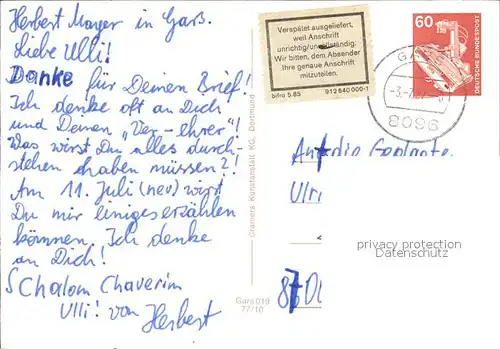 Herbert Mayer in Gars.
Liebe Ulli!
Danke für Deinen Brief!
Ich denke oft an Dich
und Deinen „Ver-ehrer"!
Was wirst Du alles durch-
stehen haben müssen?!
Am 11. Juli (neu) wirst
Du mir einiges erzählen
können. Ich denke
an Dich!
Schalom Chaverim
Ulli! von Herbert
Cramers Kunstanstalt KG, Dortmund
Gars 019
77/10
Verspätet ausgeliefert,
weil Anschrift
unrichtig/unvollständig.
Wir bitten, dem Absender
Ihre genaue Anschrift
mitzuteilen.
bifro 5.85 912 640 000-1
60
DEUTSCHE BUNDESPOST
8096
Ulri
privacy protection
Datenschutz